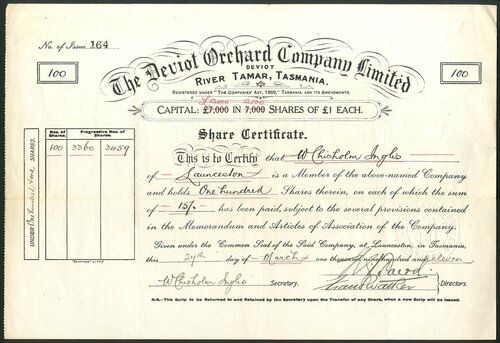 No. of Issue 164
100
100
The Deviot Orchard Company Limited
DEVIOT
RIVER TAMAR, TASMANIA.
REGISTERED UNDER "THE COMPANIES' ACT, 1869," TASMANIA AND ITS AMENDMENTS.
£12000 12000
CAPITAL: £7,000 IN 7,000 SHARES OF £1 EACH.
Share Certificate.
UNDER One hundred SHARES.
Nos. of Shares. Progressive Nos. of Shares.
100 3360 3459
This is to Certify that W Chisholm Inglis
of Launceston is a Member of the above-named Company
and holds One hundred Shares therein, on each of which the sum
of 15/- has been paid, subject to the several provisions contained
in the Memorandum and Articles of Association of the Company.
Given under the Common Seal of the Said Company, at Launceston, in Tasmania,
this 27th day of March one thousand nine hundred and eleven
W Chisholm Inglis Secretary. Directors.
N.B.—This Scrip to be Returned to and Retained by the Secretary upon the Transfer of any Share, when a new Scrip will be issued.